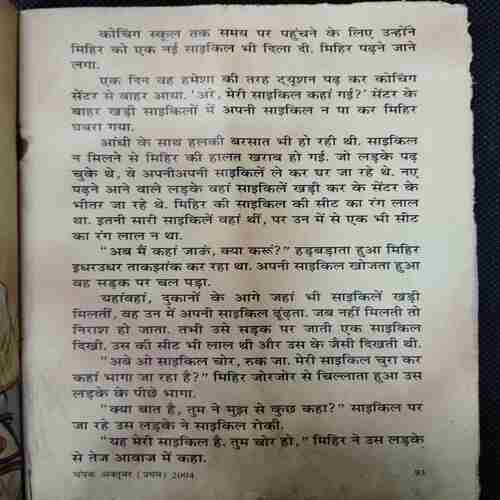 कोचिंग स्कूल तक समय पर पहुंचने के लिए उन्होंने
मिहिर को एक नई साइकिल भी दिला दी. मिहिर पढ़ने जाने
लगा.
एक दिन वह हमेशा की तरह ट्यूशन पढ़ कर कोचिंग
सेंटर से बाहर आया. 'अरे, मेरी साइकिल कहां गई?' सेंटर के
बाहर खड़ी साइकिलों में अपनी साइकिल न पा कर मिहिर
घबरा गया.
आंधी के साथ हलकी बरसात भी हो रही थी. साइकिल
न मिलने से मिहिर की हालत खराब हो गई. जो लड़के पढ़
चुके थे, वे अपनीअपनी साइकिलें ले कर घर जा रहे थे. नए
पढ़ने आने वाले लड़के वहां साइकिलें खड़ी कर के सेंटर के
भीतर जा रहे थे. मिहिर की साइकिल की सीट का रंग लाल
था. इतनी सारी साइकिलें वहां थीं, पर उन में से एक भी सीट
का रंग लाल न था.
"अब मैं कहां जाऊं, क्या करूं?" हड़बड़ाता हुआ मिहिर
इधरउधर ताकझांक कर रहा था. अपनी साइकिल खोजता हुआ
वह सड़क पर चल पड़ा.
यहांवहां, दुकानों के आगे जहां भी साइकिलें खड़ी
मिलतीं, वह उन में अपनी साइकिल ढूंढ़ता. जब नहीं मिलती तो
निराश हो जाता. तभी उसे सड़क पर जाती एक साइकिल
दिखी. उस की सीट भी लाल थी और उस के जैसी दिखती थी.
"अबे ओ साइकिल चोर, रुक जा. मेरी साइकिल चुरा कर
कहां भागा जा रहा है?" मिहिर जोरजोर से चिल्लाता हुआ उस
लड़के के पीछे भागा.
"क्या बात है, तुम ने मुझ से कुछ कहा?" साइकिल पर
जा रहे उस लड़के ने साइकिल रोकी.
"यह मेरी साइकिल है, तुम चोर हो," मिहिर ने उस लड़के
से तेज आवाज में कहा.
चंपक अक्तूबर (प्रथम) 2004 93